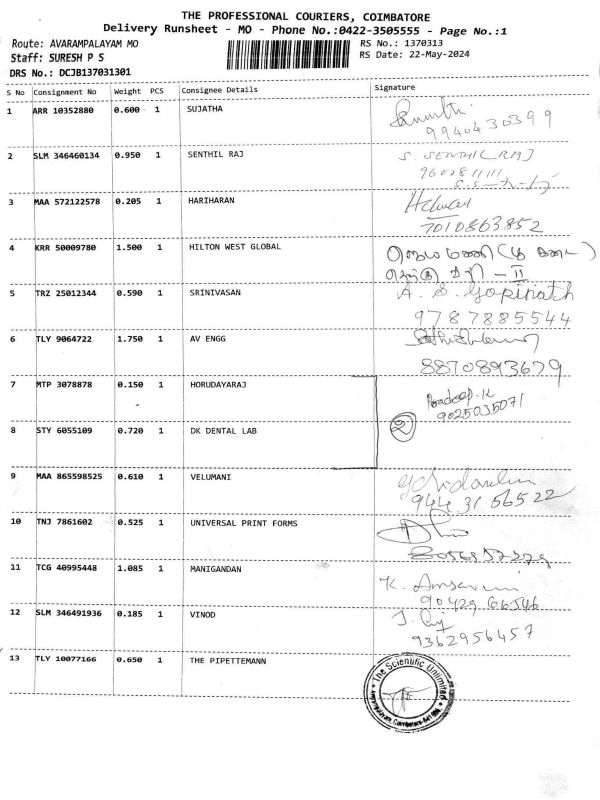 THE PROFESSIONAL COURIERS, COIMBATORE
Delivery Runsheet - MO - Phone No.:0422-3505555 - Page No.:1
Route: AVARAMPALAYAM MO
RS No.: 1370313
Staff: SURESH P S
RS Date: 22-May-2024
DRS No.: DCJB137031301
S No Consignment No Weight PCS Consignee Details Signature
1 ARR 10352880 0.600 1 SUJATHA
9940430399
2 SLM 346460134 0.950 1 SENTHIL RAJ S. SENTHIL RAJ
3 MAA 572122578 0.205 1 HARIHARAN
7010863852
4 KRR 50009780 1.500 1 HILTON WEST GLOBAL
5 TRZ 25012344 0.590 1 SRINIVASAN A. S. Gopinath
9787885544
6 TLY 9064722 1.750 1 AV ENGG
8870893679
7 MTP 3078878 0.150 1 HORUDAYARAJ Pradeep.K
9025035071
2
8 STY 6055109 0.720 1 DK DENTAL LAB
9 MAA 865598525 0.610 1 VELUMANI
9443156522
10 TNJ 7861602 0.525 1 UNIVERSAL PRINT FORMS
11 TCG 40995448 1.085 1 MANIGANDAN
K.
12 SLM 346491936 0.185 1 VINOD
9362956457
13 TLY 10077166 0.650 1 THE PIPETTEMANN
The Scientific Unlimited